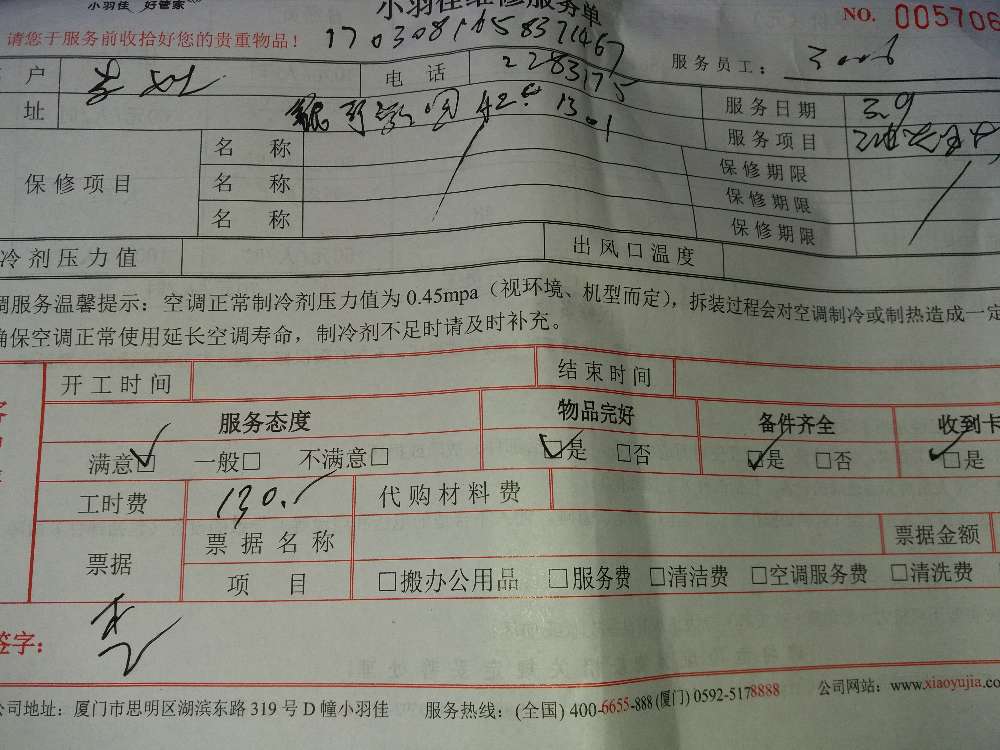 小羽佳 好管家
小羽佳维修服务单
NO. 005706
请您于服务前收拾好您的贵重物品！
17030811658371467
服务员工：
户
电 话
2283175
服务日期
3.9
址
42# 1301
服务项目
保修项目
名 称
保修期限
名 称
保修期限
名 称
保修期限
冷剂压力值
出风口温度
调服务温馨提示：空调正常制冷剂压力值为0.45mpa（视环境、机型而定），拆装过程会对空调制冷或制热造成一定
确保空调正常使用延长空调寿命，制冷剂不足时请及时补充。
开工时间
结束时间
服务态度
物品完好
备件齐全
收到卡
满意□ 一般□ 不满意□
□是 □否
□是 □否
□是
工时费
130.
代购材料费
票据
票据名称
票据金额
项 目
□搬办公用品 □服务费 □清洁费 □空调服务费 □清洗费
李
签字：
公司地址：厦门市思明区湖滨东路319号D幢小羽佳 服务热线：(全国) 400-6655-888 (厦门) 0592-5178888 公司网站：www.xiaoyujia.co